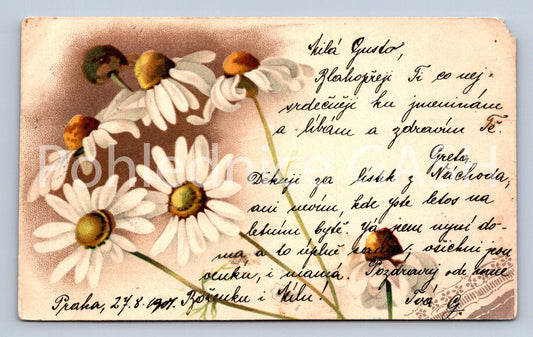 Milá Gusto,
Blahopřeji Ti co nej-
srdečněji ku jmeninám
a líbám a zdravím Tě
Greta.
Děkuji za lístek z Náchoda,
ani nevím, kde jste letos na
letním bytě. Já jsem nyní do-
ma a to úplně sama; všichni jsou
venku, i mama. Pozdravuj ode mne
Praha, 27.8.1901. Boženku i Milu! Tvá G.
Pohlednice GAAH